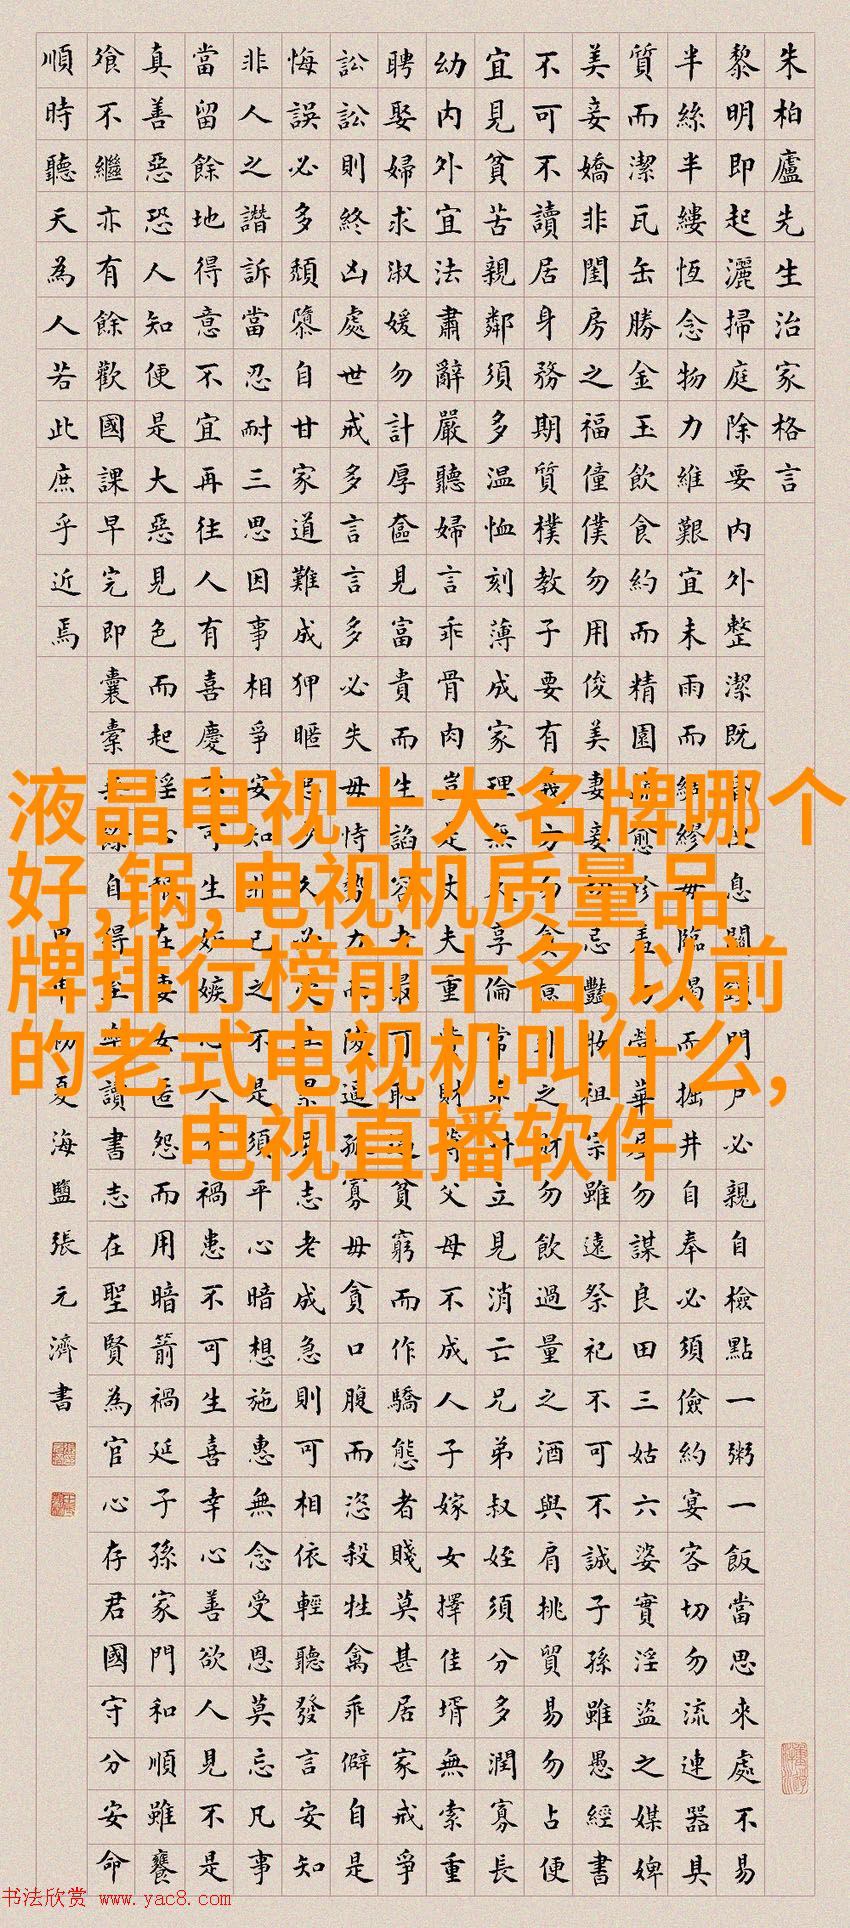 朱柏廬先生治家格言
黎明即起灑掃庭除要內外整潔既昏便息關鎖門户必親自檢點一粥一飯當思來處不易
半絲半縷恆念物力維艱宜未雨而綢繆毋臨渴而掘井自奉必須儉約宴客切勿流連器具
質而潔瓦缶勝金玉飲食約而精園蔬愈珍羞勿營華屋勿謀良田三姑六婆實淫盜之媒婢
美妾嬌非閨房之福僮僕勿用俊美妻妾切忌豔妝祖宗雖遠祭祀不可不誠子孫雖愚經書
不可不讀居身務期質樸教子要有義方勿貪意外之財勿飲過量之酒與肩挑貿易勿占便
宜見貧苦親鄰須多温恤刻薄成家理無久享倫常乖舛立見消亡兄弟叔姪須分多潤寡長
幼內外宜法肅辭嚴聽婦言乖骨肉豈是丈夫重貲財薄父母不成人子嫁女擇佳壻無索重
聘娶婦求淑媛勿計厚奩見富貴而生諂容者最可恥遇貧窮而作驕態者賤莫甚居家戒爭
訟訟則終凶處世戒多言言多必失毋恃勢力而凌逼孤寡毋貪口腹而恣殺牲禽乖僻自是
悔誤必多頹隳自甘家道難成狎暱惡少久必受其累屈志老成急則可相依輕聽發言安知
非人之譖訴當忍耐三思因事相爭安知非己之不是須平心暗想施惠無念受恩莫忘凡事
當留餘地得意不宜再往人有喜慶不可生妒嫉心人有禍患不可生喜幸心善欲人見不是
真善惡恐人知便是大惡見色而起淫心報在妻女匿怨而用暗箭禍延子孫家門和順雖饔
飧不繼亦有餘歡國課早完即囊橐無餘自得至樂讀書志在聖賢為官心存君國守分安命
順時聽天為人若此庶乎近焉
申初夏海鹽張元濟書
液晶电视十大名牌哪个
好,锅,电视机质量品
牌排行榜前十名,以前
的老式电视机叫什么,
电视直播软件
书法欣赏 www.yac8.com